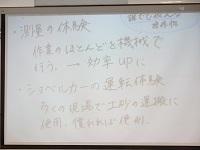 誰でも使える
・測量の体験
作業のほとんどを機械で
行う。→ 効率UPに
・ショベルカーの運転体験
多くの現場で土砂の運搬に
使用、慣れれば便利。